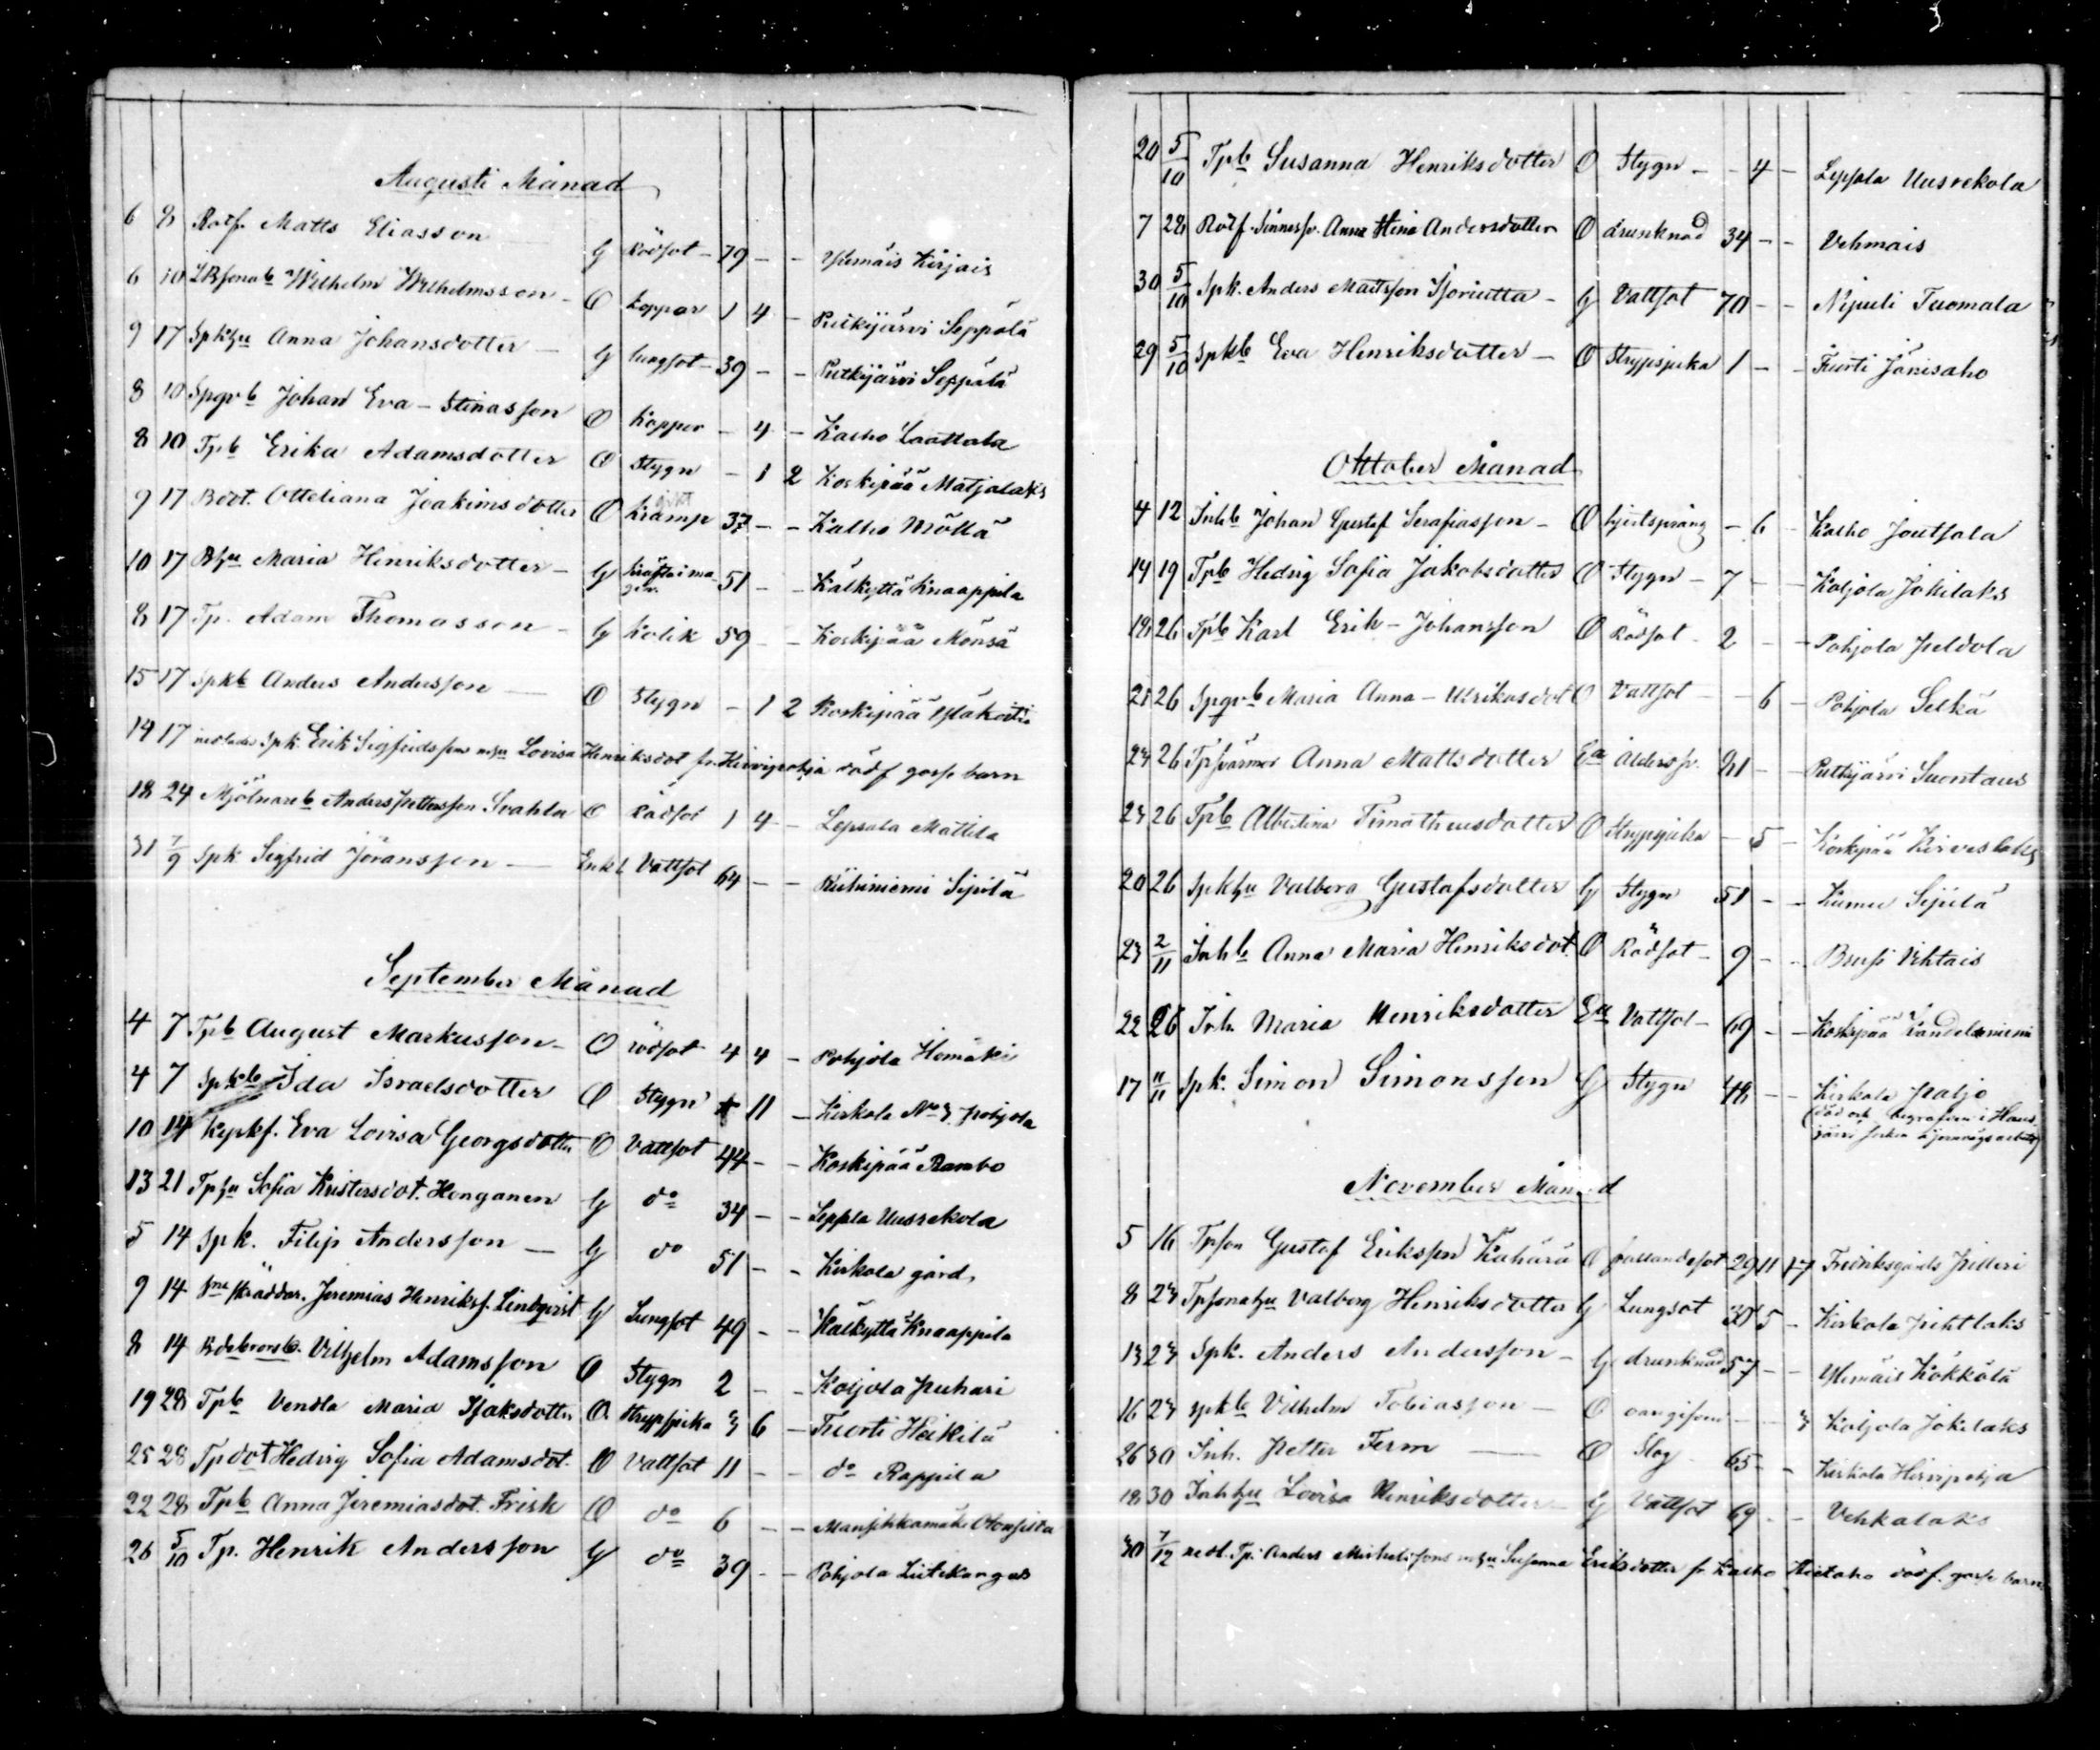 Augusti Månad
6 8 Rotf. Matts Eliasson G Rödsot 79 - - Yhemäis Kirjais
6 10 Wilhelm Wilhelmsson - O koppor 1 4 - Putkijärvi Seppälä
9 17 Spkhu Anna Johansdotter - G lungsot 39 - - Putkijärvi Seppälä
8 10 Spgvb Johan Eva-Stinasson O Koppor - 4 - Kalho Laattala
8 10 Tpb Erika Adamsdotter O Stygn - 1 2 Koskipää Matjalaks
9 17 Bdot. Otteliana Joakimsdotter O Kramp 37 - - Kalho Möllä
10 17 Bhu Maria Henriksdotter - G Kräfta i magen 51 - - Kälkyttä Knaappila
8 17 Tp. Adam Thomasson - G Kolik 59 - - Koskipää Mönsä
15 17 Spkb Anders Andersson - O Stygn - 1 2 Koskipää
14 17 Spk. Erik Sigfridssons mhu Lovisa Henriksdot fr. Hirvipohja dödf gosse barn
18 24 Mjölnareb Anders Pettersson Svahla O Rödsot 1 4 - Lepsala Mattila
31 7/9 Spk Sigfrid Jöransson - Enkl Vattsot 64 - - Ruhiniemi Sipilä
September Månad
4 7 Tpb August Markusson - O rödsot 4 4 - Pohjola Homäki
4 7 Spkb Ida Israelsdotter O Stygn 11 - Kirkola No 3 Pohjola
10 14 Kypkf. Eva Lovisa Georgsdotter O Vattsot 44 - - Koskipää Rambo
13 21 Tphu Sofia Kristersdot. Honganen G do 34 - - Leppla Uusrekola
5 14 Spk. Filip Andersson - G do 51 - - Kirkola gård
9 14 skräddar. Jeremias Henrikss. Lindqvist G Lungsot 49 - - Kälkyttä Knaappila
8 14 Vilhelm Adamsson O Stygn 2 - - Koljola Juhari
19 28 Tpb Vendla Maria Isaksdotter O Strypsjuka 3 6 - Tuorti Heikilä
25 28 Tpdot Hedvig Sofia Adamsdot. O Vattsot 11 - - do Rappila
22 28 Tpb Anna Jeremiasdot. Frisk O do 6 - - Mansikkamäki
26 5/10 Tp. Henrik Andersson G do 39 - - Pohjola Liitekangas
20 5/10 Tpb Susanna Henriksdotter O Stygn - - 4 - Lepsala Uusrekola
7 28 Rotf. Sinnessv. Anna Stina Andersdotter O drunknad 34 - - Vehmais
30 5/10 Spk. Anders Mattsson - G Vattsot 70 - - Nipuli Tuomala
29 5/10 Spkb Eva Henriksdotter - O Strypsjuka 1 - - Tuorti Jänisaho
Oktober Månad
4 12 Inhb Johan Gustaf Serafiasson - O hjertsprång - 6 - Kalho Joutsala
14 19 Tpb Hedvig Sofia Jakobsdotter O Stygn - 7 - - Koljola Jokilaks
18 26 Tpb Karl Erik-Johansson O Rödsot 2 - - Pohjola Peldola
21 26 Spgvb Maria Anna-Ulrikasdot O Vattsot - - 6 - Pohjola Selkä
23 26 Tpsvärmor Anna Mattsdotter Ea Åldersv. 81 - - Putkijärvi Suontaus
23 26 Tpb Albertina Timotheusdotter O Strypsjuka - 5 - Koskipää Kirveslaks
20 26 Spkhu Valborg Gustafsdotter G Stygn 51 - - Kumu Sipilä
23 2/11 Inhb Anna Maria Henriksdot. O Rödsot - 9 - - Brusi Vihtais
22 26 Inh. Maria Henriksdotter Ea Vattsot - 69 - - Koskipää Kandelinniemi
17 11/11 Spk. Simon Simonsson G Stygn 48 - - Kirkola Paljo
(död och begrafven i Haus-
järvi socken å jernvägsarbete)
November Månad
5 16 Tpson Gustaf Eriksson Kahära O fallandesot 29 11 17 Fredriksgårds Pilleri
8 23 Tpsonahu Valborg Henriksdotter G Lungsot 30 5 - Kirkola Pihtlaks
13 23 Spk. Anders Andersson - G drunknad 57 - - Yhemäis Kokkola
16 23 spkb Vilhelm Tobiasson - O oangifven - - 3 Koljola Jokilaks
26 30 Inh. Petter Ferm - O Slag 65 - - Kirkola Hirvipohja
18 30 Inhhu Lovisa Henriksdotter - G Vattsot 69 - - Vehkalaks
30 7/12 nedl. Tp. Anders Michelssons mhu Susanna Eriksdotter fr Kalho dödf. gosse barn